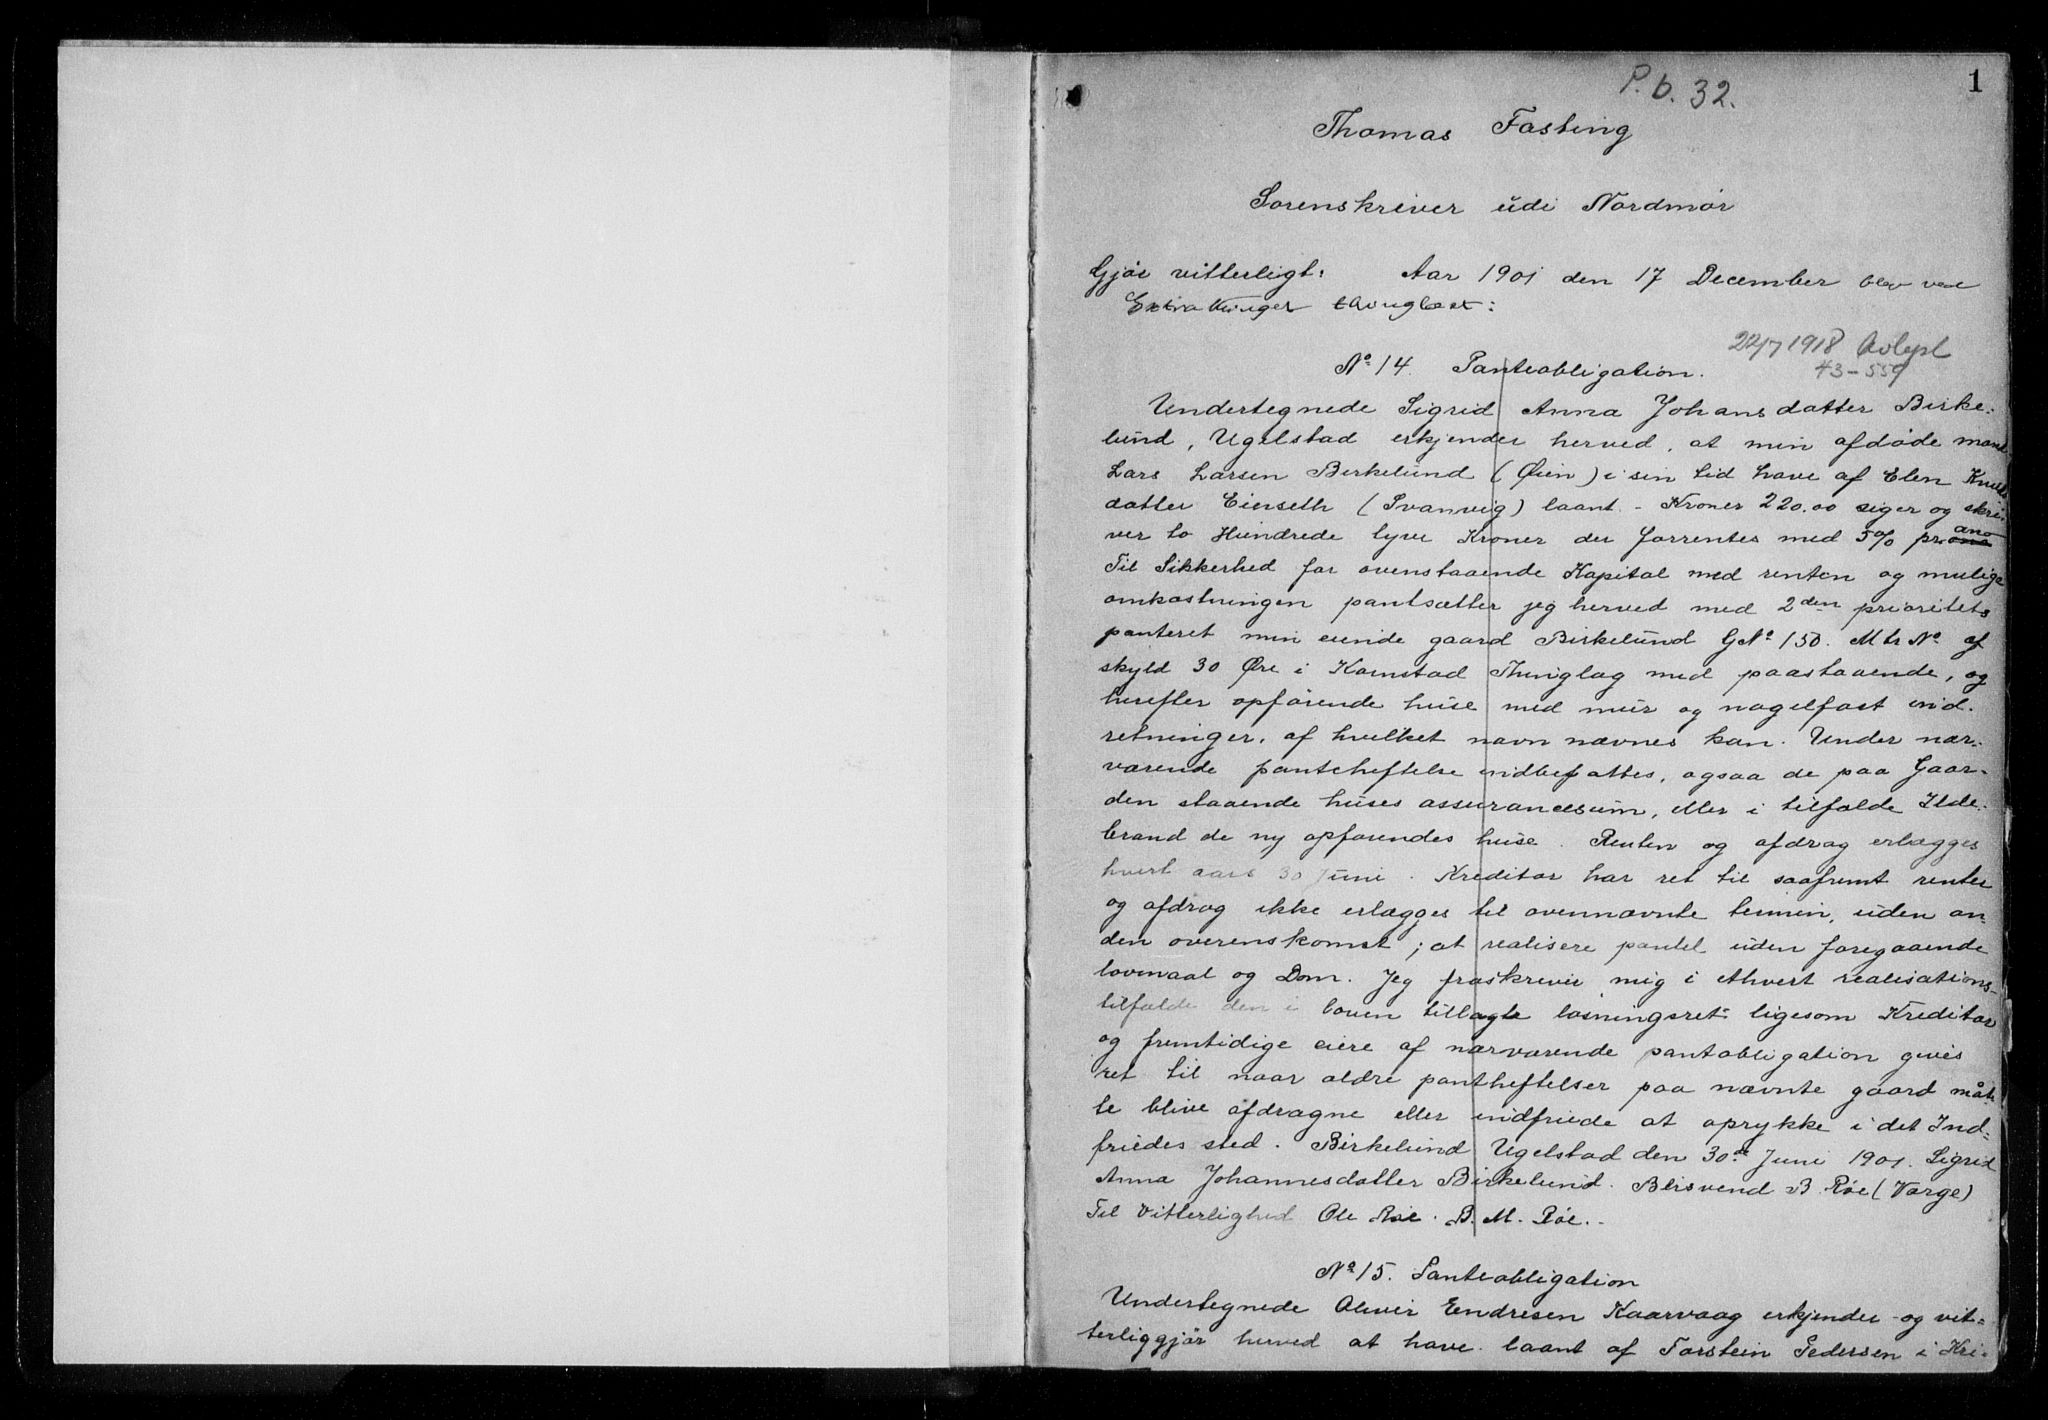 P. b. 32.
1
Thomas Fasting
Sorenskriver udi Nordmør
Gjør vitterligt: Aar 1901 den 17 December blev ved
Extrathinget thinglæst:
22/7 1918 Avlyst
43-559
No 14. Panteobligation.
Undertegnede Sigrid Anna Johansdatter Birke-
lund, Ugelstad erkjender herved, at min afdøde mand
Lars Larsen Birkelund (Øien) i sin tid have af Elen Knuds
datter Einseth (Svanvig) laant - Kroner 220.00 siger og skri-
ver to Hundrede tyve Kroner der forrentes med 5 % pr ano
Til Sikkerhed for ovenstaaende Kapital med renten og mulige
omkostningen pantsætter jeg herved med 2den prioritets
panteret min eiende gaard Birkelund GNo 150. Mtr No af
skyld 30 Øre i Kornstad Thinglag med paastaaende, og
herefter opførende huse med mur og nagelfast ind-
retninger, af hvilket navn nævnes kan. Under nær-
værende panteheftelse indbefattes, ogsaa de paa Gaar-
den staaende huses assurancesum, eller i tilfælde Ilde-
brand de ny opførendes huse. Renten og afdrag erlægges
hvert aars 30 Juni. Kreditor har ret til saafremt renter
og afdrag ikke erlægges til ovennævnte termin, uden an-
den overenskomst; at realisere pantet uden foregaaende
lovmaal og Dom. Jeg fraskriver mig i ethvert realisations-
tilfælde den i loven tillagte løsningsret ligesom Kreditor
og fremtidige eiere af nærværende pantobligation gives
ret til naar ældre pantheftelser paa nævnte gaard måt-
te blive afdragne eller indfriede at oprykke i det Ind-
friedes sted. Birkelund Ugelstad den 30te Juni 1901. Sigrid
Anna Johannesdatter Birkelund. Blisvend B. Røe (Værge)
Til Vitterlighed Ole Røe. B. M. Røe.
No 15. Panteobligation
Undertegnede Oliver Endresen Kaarvaag erkjender og vit-
terliggjør herved at have laant af Torstein Pedersen i Kri-